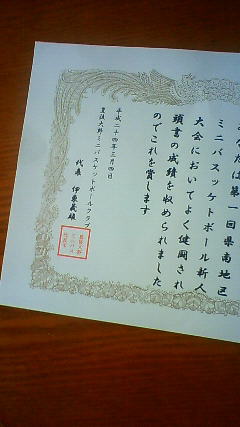 なたは第一回県南地区
ミニバスケットボール新人
大会においてよく健闘され
頭書の成績を収められました
のでこれを賞します
平成二十四年三月四日
豊後大野ミニバスケットボールクラブ
代表 伊東義雄